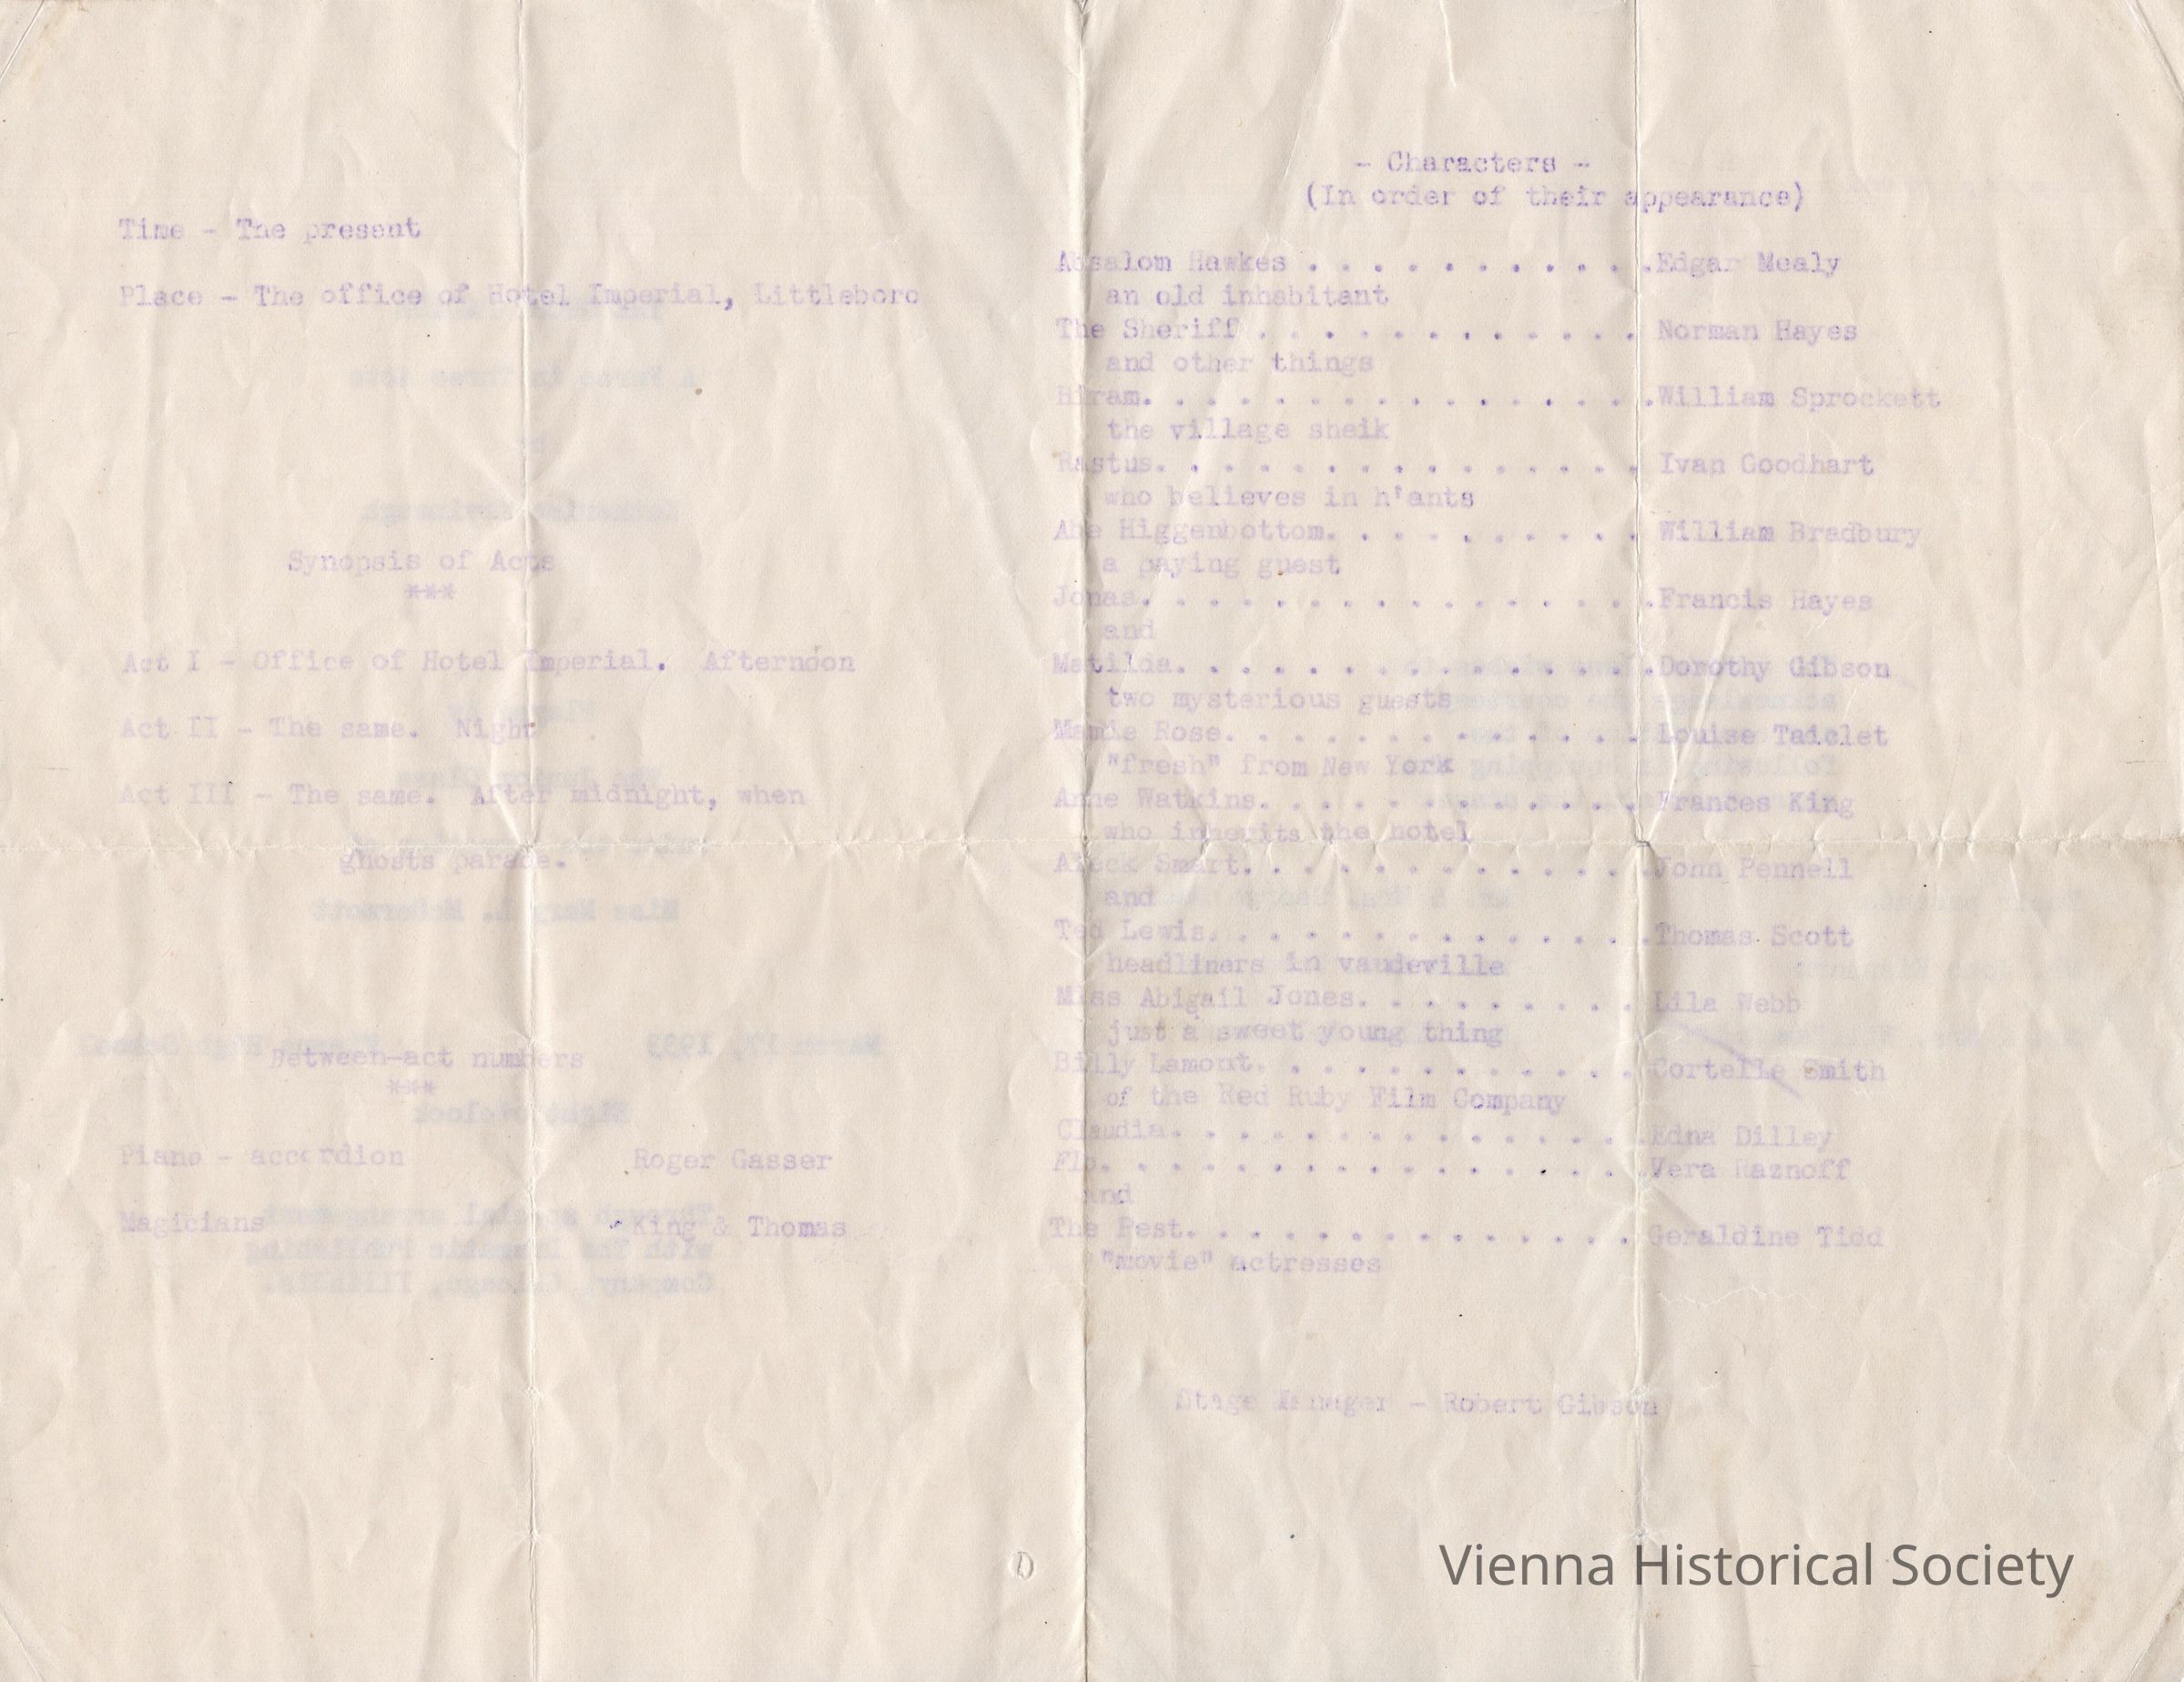 Time - The present
Place - The office of Hotel Imperial, Littleboro
Synopsis of Acts
***
Act I - Office of Hotel Imperial. Afternoon
Act II - The same. Night
Act III - The same. After midnight, when
ghosts parade.
Between-act numbers
***
Piano - accordion Roger Gasser
Magicians King & Thomas
- Characters -
(In order of their appearance)
Absalom Hawkes . . . . . . . . . . .Edgar Mealy
an old inhabitant
The Sheriff . . . . . . . . . . . . Norman Hayes
and other things
Hiram. . . . . . . . . . . . . . . .William Sprockett
the village sheik
Rastus. . . . . . . . . . . . . . . Ivan Goodhart
who believes in h'ants
Abe Higgenbottom. . . . . . . . . . William Bradbury
a paying guest
Jonas. . . . . . . . . . . . . . . .Francis Hayes
and
Matilda. . . . . . . . . . . . . . .Dorothy Gibson
two mysterious guests
Mamie Rose. . . . . . . . . . . . . Louise Taiclet
"fresh" from New York
Anne Watkins. . . . . . . . . . . . Frances King
who inherits the hotel
Aleck Smart. . . . . . . . . . . . .John Pennell
and
Ted Lewis. . . . . . . . . . . . . .Thomas Scott
headliners in vaudeville
Miss Abigail Jones. . . . . . . . . Lila Webb
just a sweet young thing
Billy Lamont. . . . . . . . . . . . Cortelle Smith
of the Red Ruby Film Company
Claudia. . . . . . . . . . . . . . .Edna Dilley
Flo. . . . . . . . . . . . . . . . .Vera Raznoff
and
The Pest. . . . . . . . . . . . . . Geraldine Tidd
"movie" actresses
Stage Manager - Robert Gibson
Vienna Historical Society